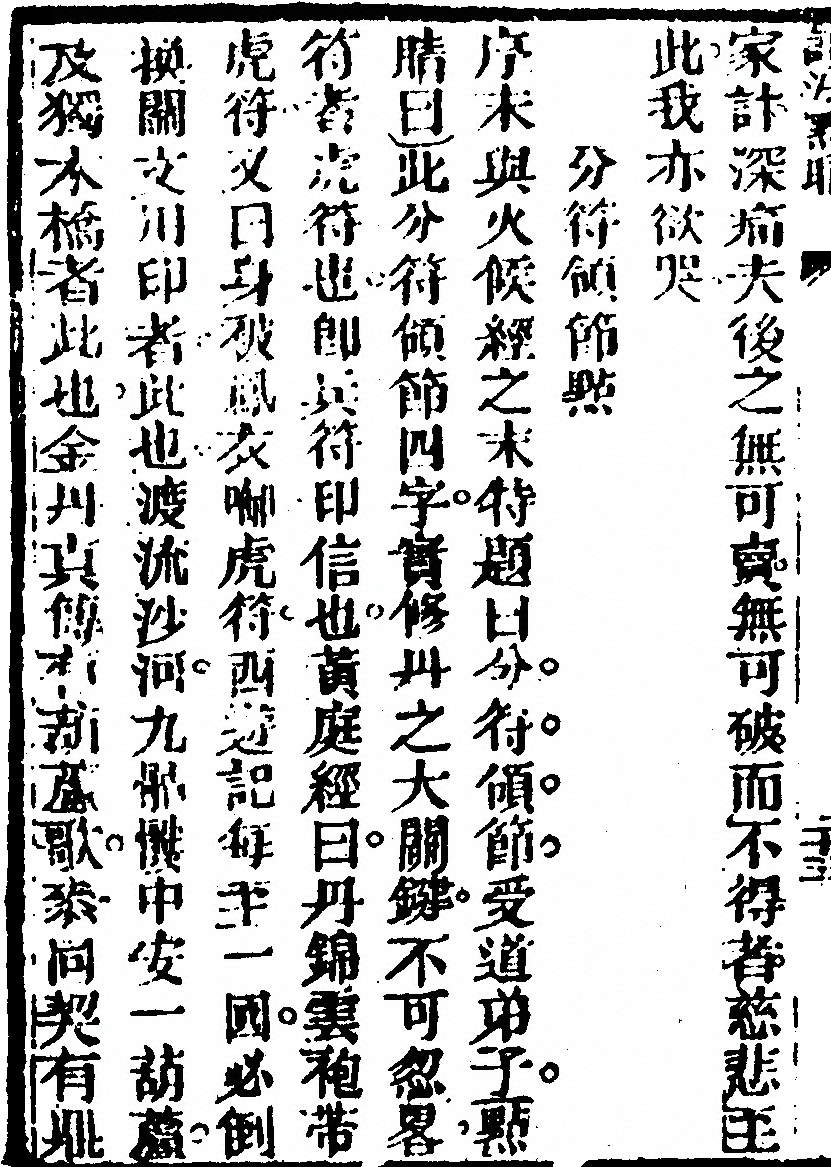 家計深痛夫後之無可賣無可破而不得者慈悲至
此我亦欲哭
分符領節點
序末與火候經之末特題曰分符領節受道弟子點
睛曰此分符領節四字實修丹之大關鍵不可忽畧
符者虎符也即兵符印信也黃庭經曰丹錦雲袍帶
虎符又曰身披鳳衣啣虎符西遊記每至一國必倒
換關文用印者此也渡流沙河九骷髏中安一葫蘆
及獨木橋者此也金丹真傳有葫蘆歌叅同契有